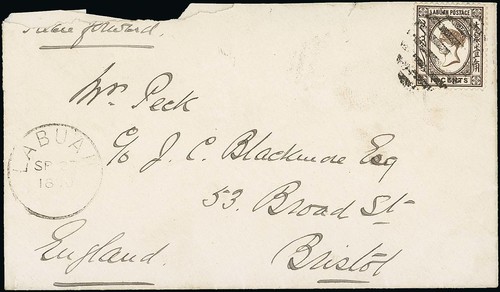 Please forward.
LABUAN POSTAGE
CENTS
Mr. Peck
c/o J. C. Blackmore Esq
53. Broad St
Bristol
England.
LABUAN
SP